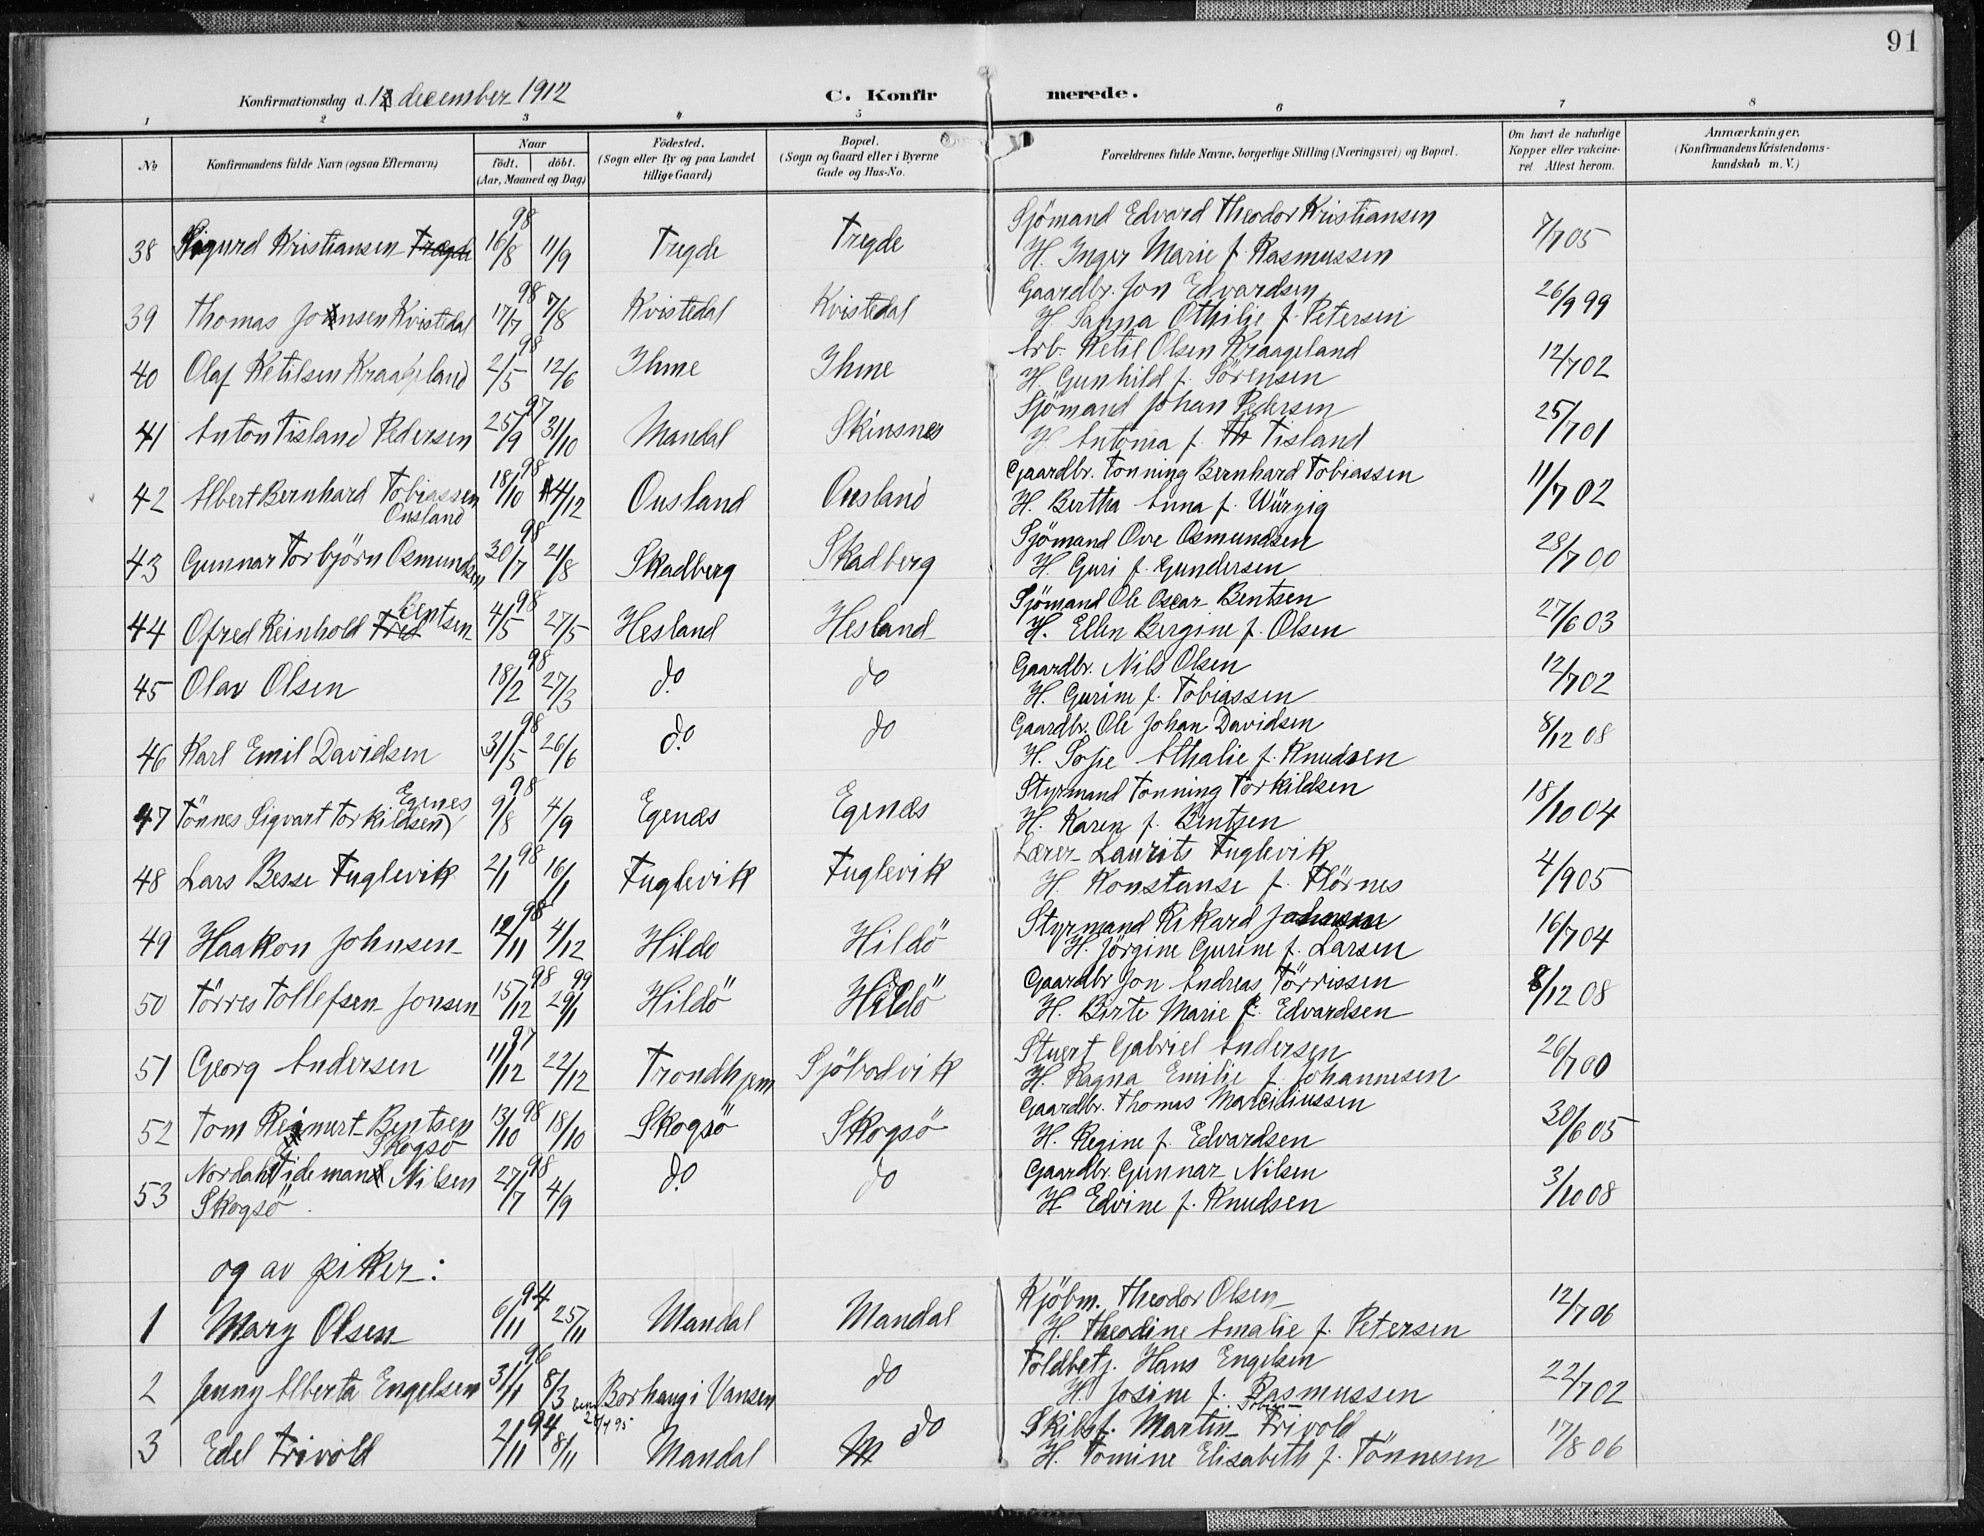 91
Konfirmationsdag d. 1 december 1912
C. Konfirmerede.
1 2 3 4 5 6 7 8
No
Konfirmandens fulde Navn (ogsaa Efternavn)
Naar
født. døbt.
(Aar, Maaned og Dag)
Fødested.
(Sogn eller By og paa Landet
tillige Gaard)
Bopæl.
(Sogn og Gaard eller i Byerne
Gade og Hus-No.
Forældrenes fulde Navne, borgerlige Stilling (Næringsvei) og Bopæl.
Om havt de naturlige
Kopper eller vakcine-
ret. Attest herom.
Anmærkninger.
(Konfirmandens Kristendoms-
kundskab m. V.)
38 Sigurd Kristiansen Trægde 16/8 98 11/9 Tregde Tregde Sjömand Edvard Theodor Kristiansen 7/7 05
H. Inger Marie f. Rasmussen
39 Thomas Jonsen Kvistedal 17/7 98 7/8 Kvistedal Kvistedal Gaardbr. Jon Edvardsen 26/9 99
H. Sanna Othilie f. Petersen
40 Olaf Ketilsen Kraageland 2/5 98 12/6 Ihme Ihme Arb. Ketil Olsen Kraageland 12/7 02
H. Gunhild f. Sörensen
41 Anton Tisland Pedersen 25/9 97 31/10 Mandal Skinsnes Sjömand Johan Pedersen 25/7 01
H. Antonia f. Th Tisland
42 Albert Bernhard Tobiassen 18/10 98 4/12 Ousland Ousland Gaardbr. Tonning Bernhard Tobiassen 11/7 02
Ousland H. Bertha Anna f. Würzig
43 Gunnar Torbjörn Osmundsen 30/7 98 21/8 Skadberg Skadberg Sjömand Ove Osmundsen 28/7 00
H. Guri f. Gundersen
44 Ofred Reinhold Bentsen 4/5 98 27/5 Hesland Hesland Sjömand Ole Oscar Bentsen 27/6 03
H. Ellen Bergine f. Olsen
45 Olav Olsen 18/2 98 27/3 do do Gaardbr. Nils Olsen 12/7 02
H. Gurine f. Tobiassen
46 Karl Emil Davidsen 31/5 98 26/6 do do Gaardbr. Ole Johan Davidsen 8/12 08
H. Sofie Athalie f. Knudsen
47 Tönnes Sigvart Torkildsen Egenes 9/8 98 4/9 Egenæs Egenæs Styrmand Tonning Torkildsen 18/10 04
H. Karen f. Bentsen
48 Lars Besse Fuglevik 2/1 98 16/1 Fuglevik Fuglevik Lærer Laurits Fuglevik 4/9 05
H Konstanse f. Flörnes
49 Haakon Johnsen 12/11 98 4/12 Hildo Hildö Styrmand Rikard Johnsen 16/7 04
H. Jörgine Gurine f. Larsen
50 Törres Tollefsen Jonsen 15/12 98 29/1 99 Hildö Hildö Gaardbr Jon Andreas Törrissen 8/12 08
H. Birte Marie f. Edvardsen
51 Georg Andersen 11/12 97 22/12 Trondhjem Sjöbodvik Stuert Gabriel Andersen 26/7 00
H. Ragna Emilie f. Johannesen
52 Tom Reinert Bentsen 13/10 98 18/10 Skogsö Skogsö Gaardbr. Thomas Marciliussen 30/6 05
Skogsö H. Regine f. Edvardsen
53 Nordahl Tideman Nilsen 27/7 98 4/9 do do Gaardbr. Gunnar Nilsen 3/10 08
Skogsö H Edvine f. Knudsen
og av piker:
1 Mary Olsen 6/11 94 25/11 Mandal Mandal Kjöbm. Theodor Olsen 12/7 06
H. Theodine Amalie f. Petersen
2 Jenny Alberta Engelsen 31/1 96 8/3 Borhaug i Vansen do Toldbetj. Hans Engelsen 22/7 02
H. Josine f. Rasmussen
3 Edel Trivold 2/11 94 8/11 Mandal do Skibsf. Martin Trivold 17/8 06
H. Tomine Elisabeth f. Tönnesen